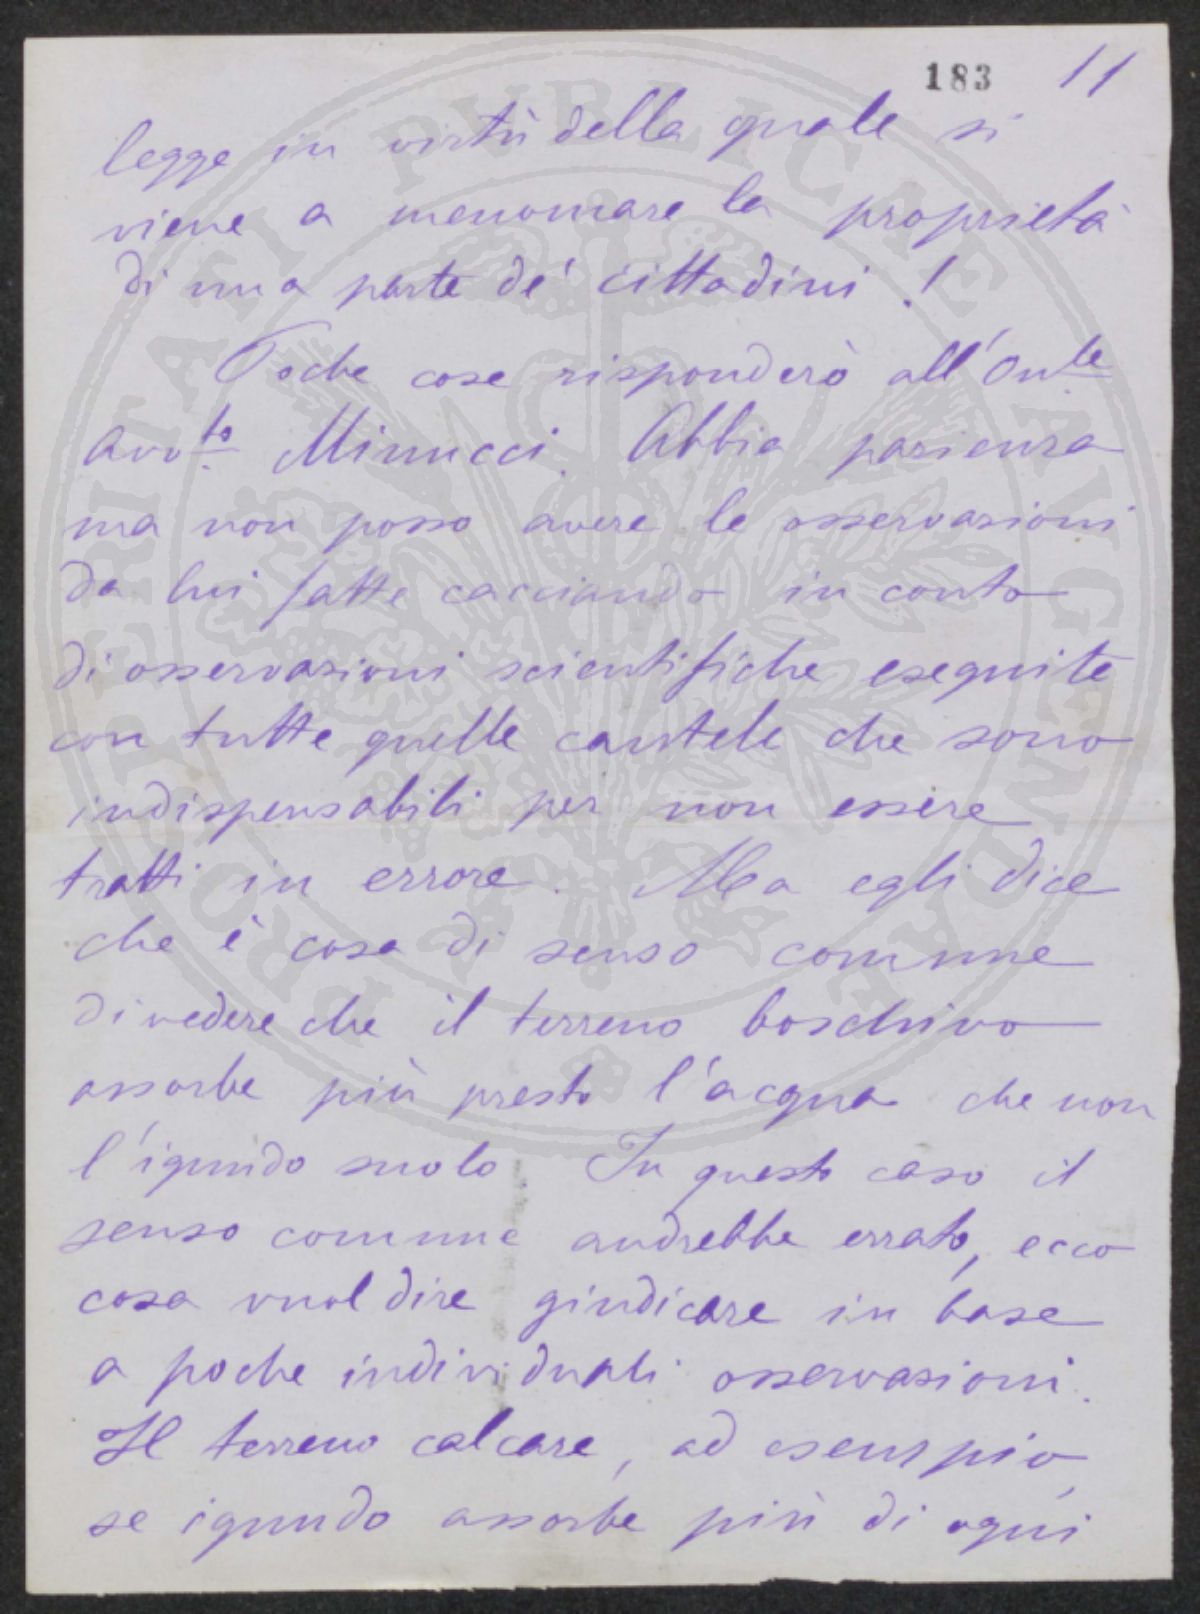 183 11
legge in virtù della quale si
viene a menomare la proprietà
di una parte de' cittadini!
Poche cose risponderò all'Onle
Avvto Minucci. Abbia pazienza
ma non posso avere le osservazioni
da lui fatte cacciando in conto
di osservazioni scientifiche eseguite
con tutte quelle cautele che sono
indispensabili per non essere
tratti in errore. Ma egli dice
che è cosa di senso comune
di vedere che il terreno boschivo
assorbe più presto l'acqua che non
l'ignudo suolo. In questo caso il
senso comune andrebbe errato, ecco
cosa vuol dire giudicare in base
a poche individuali osservazioni.
Il terreno calcare, ad esempio,
se ignudo assorbe più di ogni